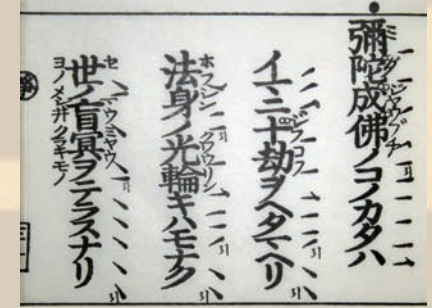 彌陀成佛ノコノカタハ
イマニ十劫ヲヘタマヘリ
法身ノ光輪キハモナク
世ノ盲冥ヲテラスナリ
ヨノメシヰクラキモノ